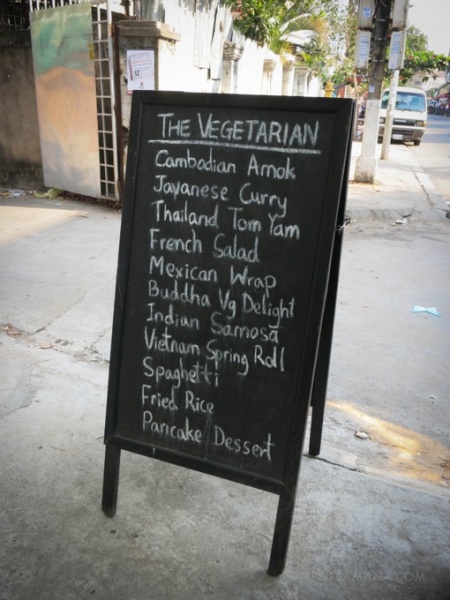 THE VEGETARIAN
Cambodian Amok
Javanese Curry
Thailand Tom Yam
French Salad
Mexican Wrap
Buddha Vg Delight
Indian Samosa
Vietnam Spring Roll
Spaghetti
Fried Rice
Pancake Dessert